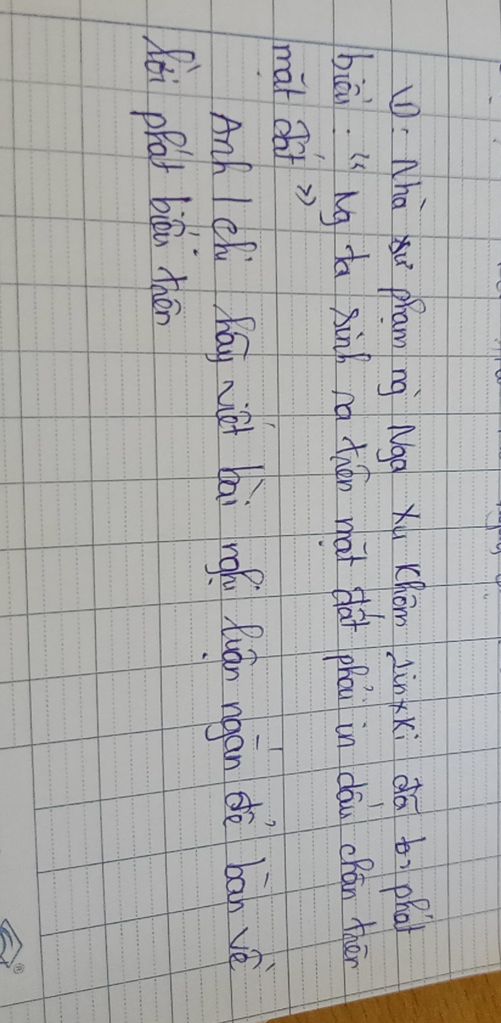 VD: Nhà sư phạm ng̀ Nga Xu Khôm linxki đã phát
biểu: "Ng ta sinh ra trên mặt đất phải in dấu chân trên
mặt đất"
Anh/chị hãy viết bài nghị luận ngắn để bàn về
lời phát biểu trên